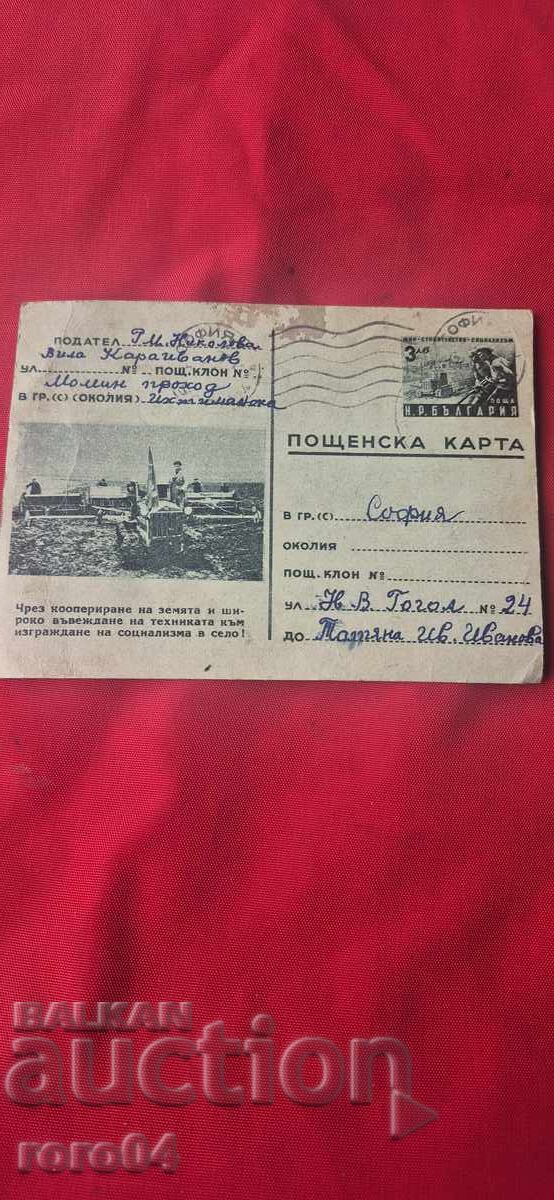 ПОДАТЕЛ Г. М. Николова
Вила Карагиванов
УЛ. № ПОЩ. КЛОН №
Момин проход
В ГР. (С) (ОКОЛИЯ) Ихтиманска
СОФИЯ
МИР-СТРОИТЕЛСТВО-СОЦИАЛИЗЪМ
3 ЛВ
ПОЩА
Н.Р. БЪЛГАРИЯ
ПОЩЕНСКА КАРТА
В ГР. (С) София
ОКОЛИЯ
ПОЩ. КЛОН №
УЛ Н. В. Гогол № 24
ДО Татяна Ив. Иванова
Чрез коопериране на земята и ши-
роко въвеждане на техниката към
изграждане на социализма в село!
BALKAN
auction
roro04